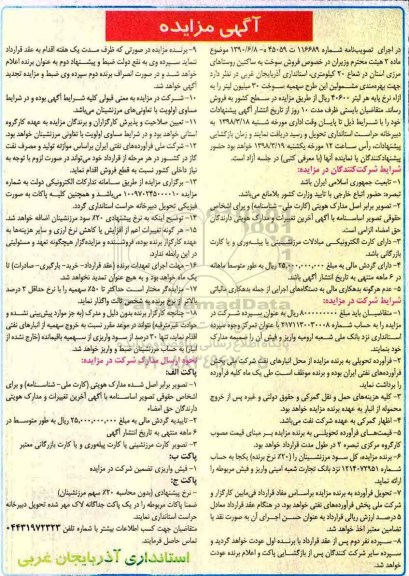 آگهی مزایده
در اجرای تصویب‌نامه شماره ۱۱۶۶۸۹ ت ۴۵۰۵۹ ه- ۱۳۹۰/۶/۸ موضوع
ماده ۲ هیئت محترم وزیران در خصوص فروش سوخت به ساکنین روستاهای
مرزی استان در شعاع ۲۰ کیلومتری، استانداری آذربایجان غربی در نظر دارد
جهت بهره‌مندی مشمولین این طرح سهمیه سوخت ۳۰ میلیون لیتر را به
ازاء نرخ پایه هر لیتر ۴۰۶۰۰ ریال از طریق مزایده در سطح کشور به فروش
رساند. متقاضیان بایستی ظرف مدت ۱۰ روز از تاریخ انتشار آگهی پیشنهادات
خود را با شرایط ذیل تا پایان وقت اداری مورخه شنبه ۱۳۹۸/۳/۱۸ به
دبیرخانه حراست استانداری تحویل و رسید دریافت نمایند و زمان بازگشایی
پیشنهادات، رأس ساعت ۱۲ مورخه یکشنبه ۱۳۹۸/۳/۱۹ خواهد بود حضور
پیشنهاددهندگان یا نماینده آنها (با معرفی کتبی) در جلسه آزاد است.
شرایط شرکت‌کنندگان در مزایده:
۱- تابعیت جمهوری اسلامی ایران باشد
تبصره: حضور اتباع خارجی با تایید وزارت کشور بلامانع می‌باشد.
۲- تصویر برابر اصل مدارک هویتی (کارت ملی - شناسنامه) و برای اشخاص
حقوقی تصویر اساسنامه با آگهی آخرین تغییرات و مدارک هویتی دارندگان
حق امضاء الزامی است.
۳- دارای کارت الکترونیکی مبادلات مرزنشینی یا پیله‌وری و یا کارت
بازرگانی باشد.
۴- دارای گردش مالی به مبلغ ۲۵,۰۰۰,۰۰۰,۰۰۰ ریال به طور متوسط ماهانه
در ۶ ماهه منتهی به تاریخ انتشار آگهی باشد.
۵- هیچگونه بدهکاری مالی به دستگاه‌های اجرایی از جمله بدهکاری مالیاتی
شرایط شرکت در مزایده:
۱- متقاضیان باید مبلغ ۸۰۰۰۰۰۰۰۰۰ ریال به عنوان سپرده شرکت در
مزایده را به حساب شماره ۲۱۷۱۱۳۰۳۰۰۸ با عنوان تمرکز وجوه سپرده
استانداری نزد بانک ملی شعبه ارومیه واریز و فیش آن را ضمیمه مدارک
خود بنمایند.
۲- فرآورده تحویلی به برنده مزایده از محل انبارهای نفت شرکت ملی پخش
فرآورده‌های نفتی ایران بوده و برنده موظف است طی یک ماه کلیه فرآورده
را برداشت نماید.
۳- کلیه هزینه‌های حمل و نقل گمرکی و حقوق دولتی و غیره پس از خروج
محموله از انبار به عهده برنده مزایده خواهد بود.
۴- اظهار گمرکی به عهده شرکت نفت می‌باشد.
۵- قیمت‌های فرآورده تحویلی به برنده مزایده بر مبنای قیمت مصوب
کارگروه مرکزی تبصره ۲ در طول مدت قرارداد خواهد بود.
۶- برنده مزایده، کل سود مرزنشینان را (۲۰٪ نرخ برنده) یکجا به حساب
شماره ۱۲۱۴۰۷۲۹۵۱ نزد بانک تجارت شعبه امینی واریز و فیش مربوطه را
ارائه نماید.
۷- تحویل فرآورده به برنده مزایده براساس مفاد قرارداد فی‌مابین کارگزار و
شرکت ملی پخش فرآورده‌های نفتی خواهد بود. در هنگام عقد قرارداد معادل
۵ درصد ارزش ریالی قرارداد به عنوان حسن اجرای آن به صورت نقد یا
تضمین معتبر اخذ خواهد شد.
۸- سپرده نفر دوم پس از عقد قرارداد با برنده اول عودت خواهد گردید و
سپرده سایر شرکت کنندگان پس از بازگشایی پاکت و اعلام برنده عودت
خواهد شد.
۹- برنده مزایده در صورتی که ظرف مدت یک هفته اقدام به عقد قرارداد
ننماید سپرده وی به نفع دولت ضبط و پیشنهاد دوم به عنوان برنده اعلام
خواهد شد و در صورت انصراف برنده دوم سپرده وی ضبط و مزایده تجدید
خواهد شد.
۱۰- شرکت در مزایده به معنی قبولی کلیه شرایط آگهی بوده و در شرایط
مساوی اولویت با تعاونی‌های مرزنشین می‌باشد.
۱۱- تعیین صلاحیت و پذیرش کارگزاران و برندگان مزایده به عهده کارگروه
استانی خواهد بود و در شرایط مساوی اولویت با تعاونی مرزنشینان خواهد بود.
۱۲- شرکت ملی فرآورده‌های نفتی ایران براساس موازنه تولید و مصرف نفت
گاز در کشور در هر مرحله از قرارداد خود می‌تواند در صورت لزوم با توجه به
نیاز داخلی کشور نسبت به قطع فروش اقدام نماید.
۱۳- برگزاری مزایده از طریق سامانه تدارکات الکترونیکی دولت به شماره
می‌باشد و همچنین کلیه پاکات به صورت
فیزیکی تحویل دبیرخانه حراست استانداری گردد.
۱۴- توضیح اینکه به نرخ پیشنهادی ۲۰٪ سود مرزنشینان اضافه خواهد شد.
۱۵- هر گونه تغییرات اعم از افزایش یا کاهش نرخ ارزی و سایر هزینه‌ها به
عهده کارگزار برنده بوده، فروشنده و مزایده‌گزار هیچگونه تعهد و مسئولیتی
در این رابطه ندارد.
۱۶- مهلت اجرای تعهدات برنده (عقد قرارداد- خرید- بارگیری- صادرات) تا
یک ماه خواهد بود و به هیچ عنوان تمدید نخواهد شد.
۱۷- مزایده‌گر مختار است حداکثر تا ۵۰٪ سهمیه را با نرخ حداقل ۲ درصد
بالاتر از نرخ برنده به شخص ثالث واگذار نماید.
۱۸- چنانچه کارگزار برنده بدون دلیل و مدرک (به جز موارد پیش‌بینی نشده و
حوادث غیرمترقبه) نتواند در موعد مقرر نسبت به خروج سهمیه از انبارهای نفتی
اقدام نماید، تنها ۳۰ درصد از سود واریزی از سهمیه باقیمانده (خارج نشده از
انبار) به حساب مرزنشینان ضبط و واریز خواهد شد.
نحوه ارسال مدارک شرکت در مزایده:
پاکت الف:
۱- تصویر برابر اصل شده مدارک هویتی (کارت ملی- شناسنامه) و برای
اشخاص حقوقی تصویر اساسنامه با آگهی آخرین تغییرات و مدارک هویتی
دارندگان حق امضاء
۲- تاییدیه گردش مالی به مبلغ ۲۵,۰۰۰,۰۰۰,۰۰۰ ریال به طور متوسط در
۶ ماهه منتهی به تاریخ انتشار آگهی
۳- تصویر کارت مرزنشینی یا کارت پیله‌وری و یا کارت بازرگانی معتبر
پاکت ب:
۱- فیش واریزی تضمین شرکت در مزایده
پاکت ج:
- نرخ پیشنهادی (بدون محاسبه ۲۰٪ سهم مرزنشینان)
ضمنا پاکات مربوطه را در یک پاکت جداگانه لاک مهر شده تحویل دبیرخانه
حراست استانداری نمایند.
متقاضیان جهت کسب اطلاعات بیشتر با شماره تلفن ۰۴۴۳۱۹۷۲۳۲۳
تماس حاصل فرمایند.
استانداری آذربایجان غربی